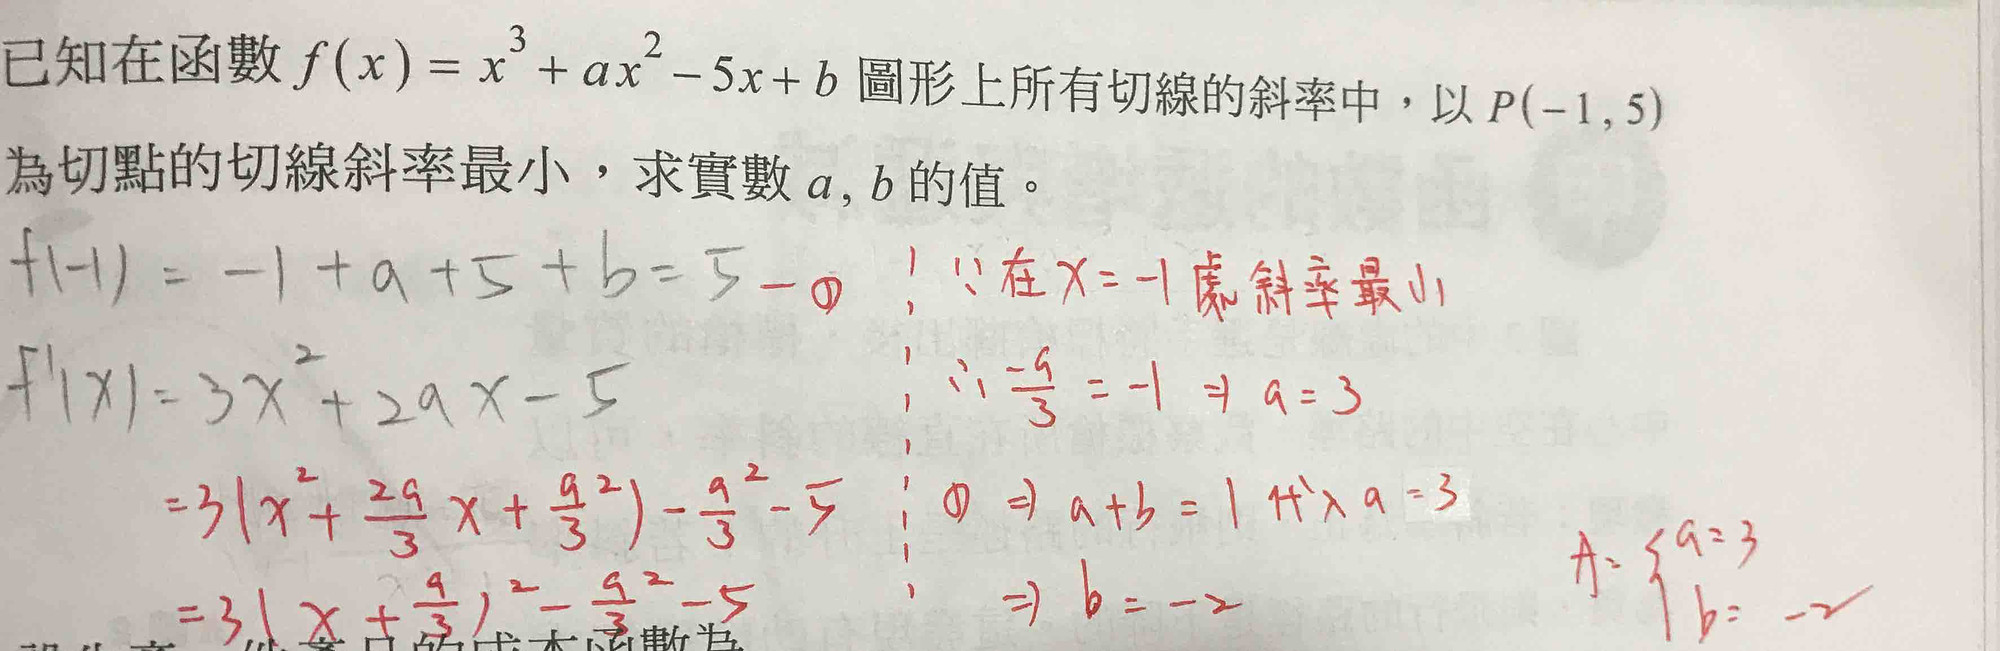 已知在函數 f(x) = x³ + ax² − 5x + b 圖形上所有切線的斜率中，以 P(−1, 5)
為切點的切線斜率最小，求實數 a, b 的值。
f(-1) = -1 + a + 5 + b = 5 — ①
f'(x) = 3x² + 2ax - 5
= 3(x² + 2a/3 x + a²/3) - a²/3 - 5
= 3(x + a/3)² - a²/3 - 5
∵在 x = -1 處斜率最小
∴ -a/3 = -1 ⇒ a = 3
① ⇒ a + b = 1 代入 a = 3
⇒ b = -2
A: { a = 3
b = -2
的成本函數為